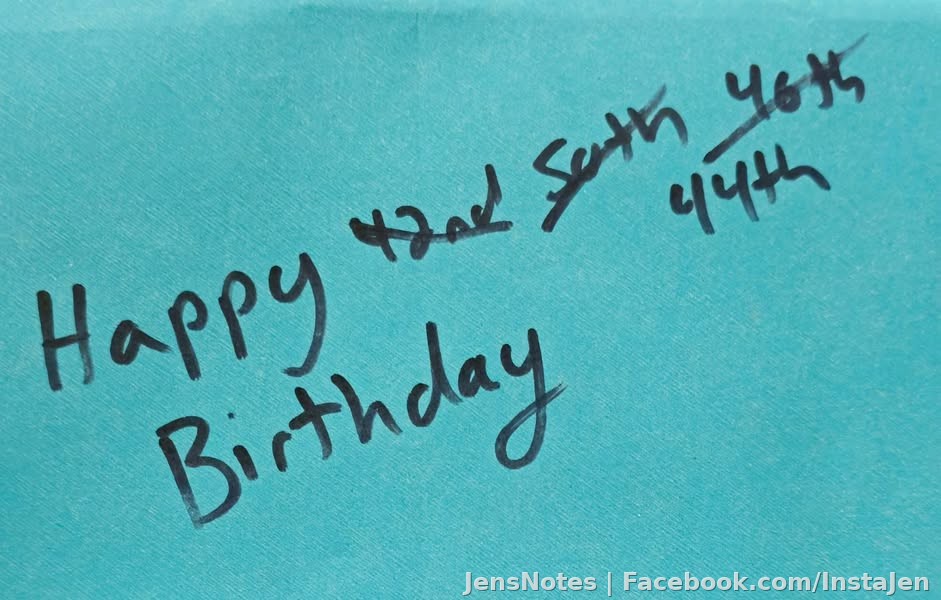 Happy 42nd 46th
44th
Birthday
JensNotes | Facebook.com/InstaJen